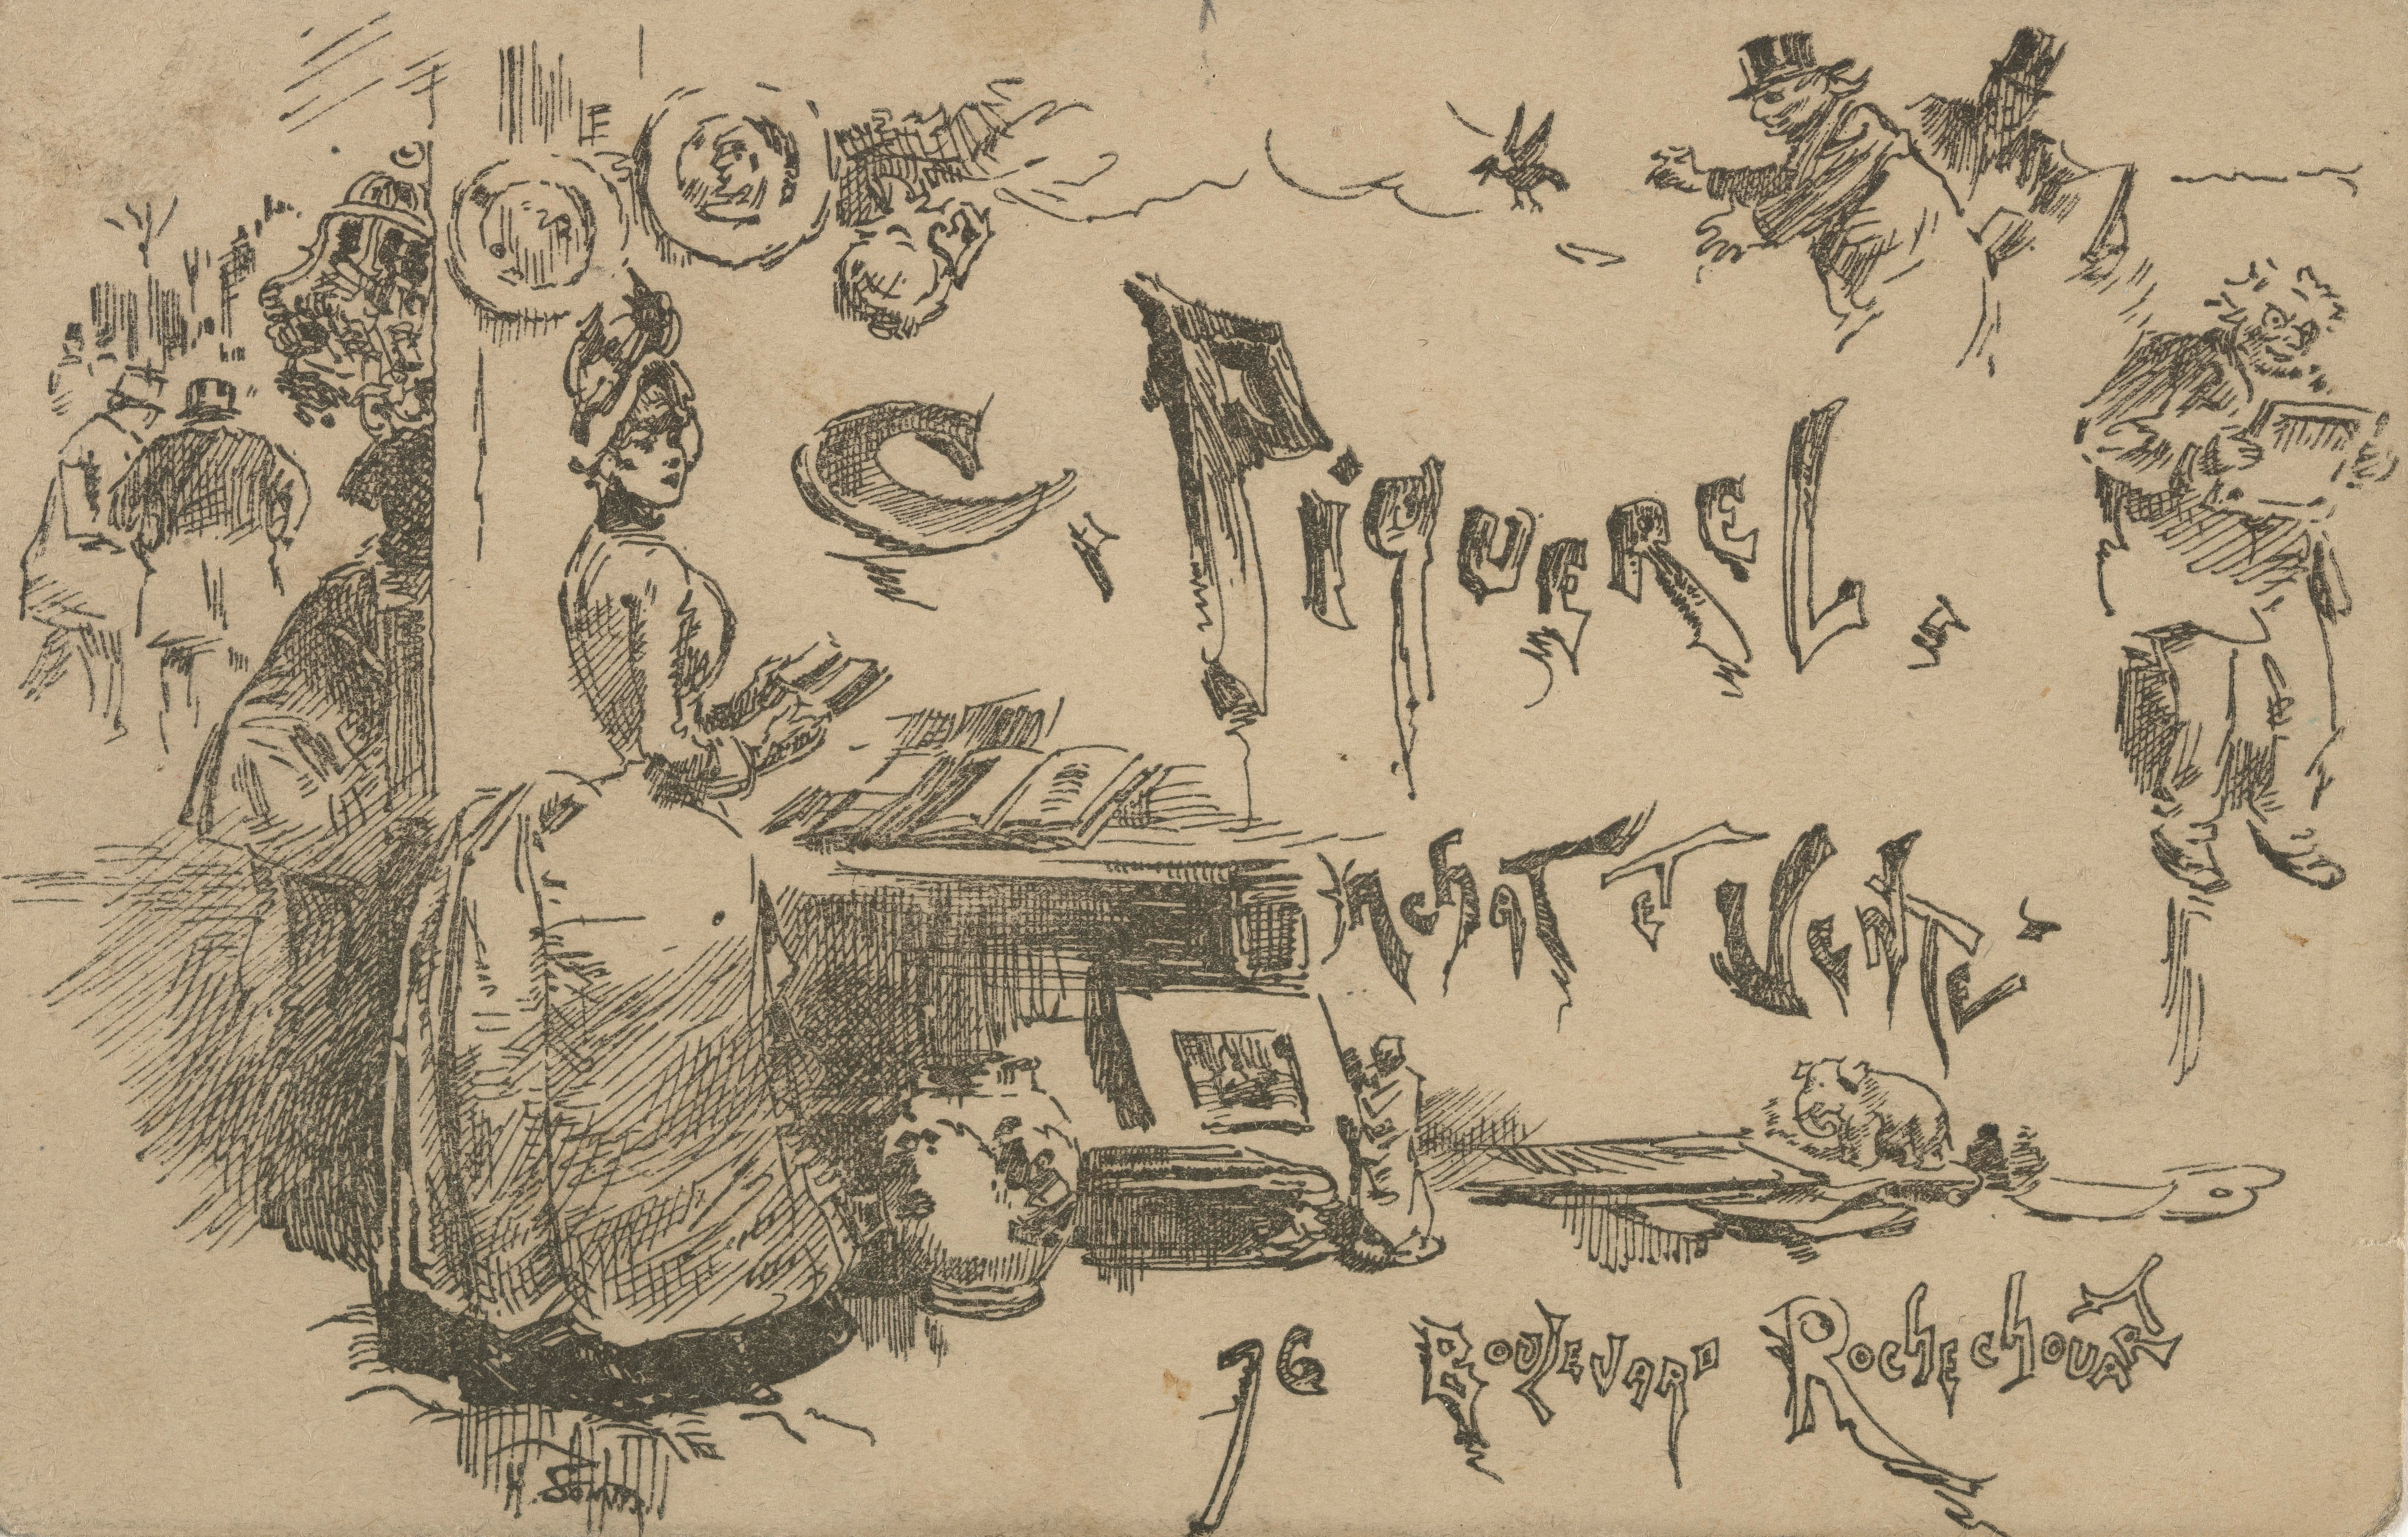 C. Piquerel,
Achat et Vente.
76 Boulevard Rochechouart
H. Somm